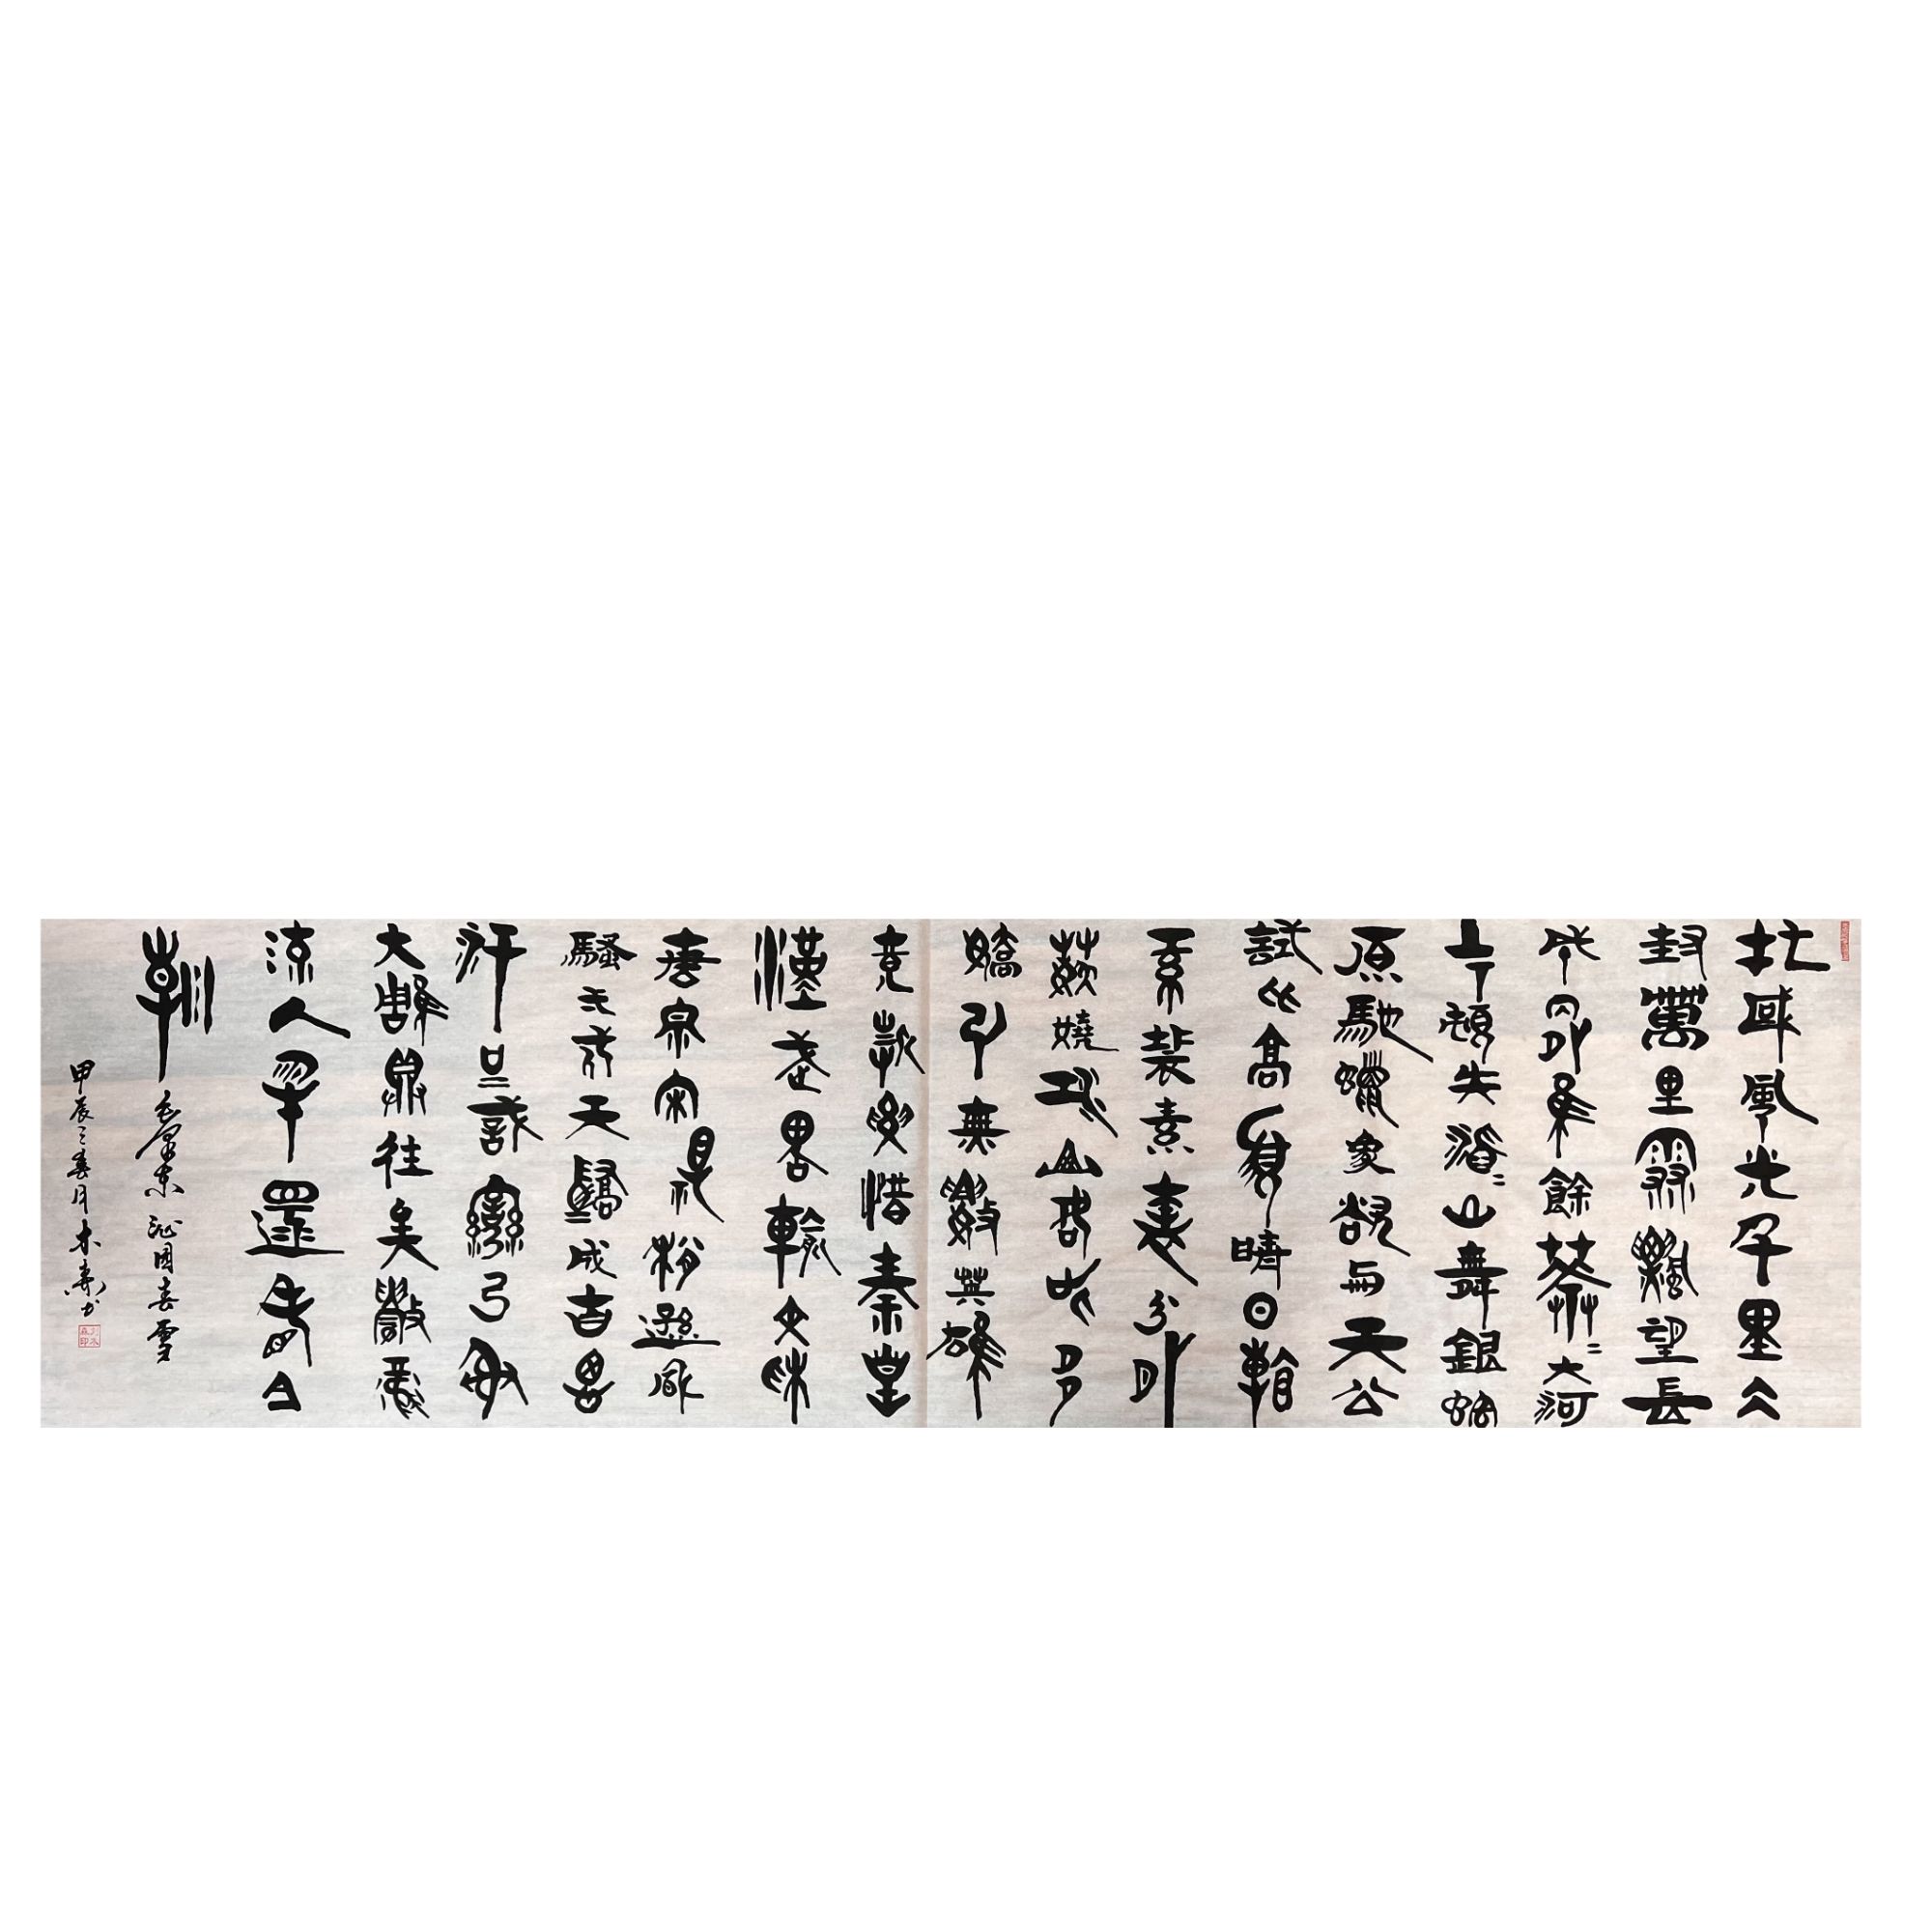 北國風光千里冰
封萬里雪飄望長
城內外惟餘莽〻大河
上下頓失滔〻山舞銀蛇
原馳蠟象欲與天公
試比高須晴日看
紅裝素裹分外
妖嬈江山如此多
嬌引無數英雄
競折腰惜秦皇
漢武略輸文采
唐宗宋祖稍遜風
騷一代天驕成吉思
汗只識彎弓射
大雕俱往矣數風
流人物還看今
朝 毛澤東沁園春雪
甲辰之春月木壽書